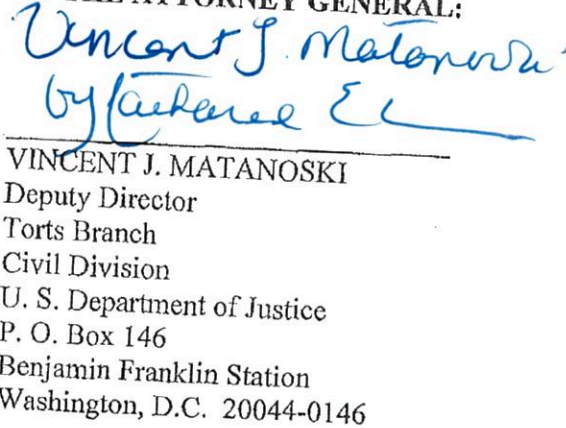 THE ATTORNEY GENERAL:
Vincent J. Matanoski
by
VINCENT J. MATANOSKI
Deputy Director
Torts Branch
Civil Division
U. S. Department of Justice
P. O. Box 146
Benjamin Franklin Station
Washington, D.C. 20044-0146